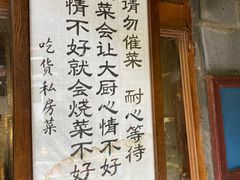 请勿催菜 耐心等待
菜会让大厨心情不好
情不好就会烧菜不好
吃货私房菜